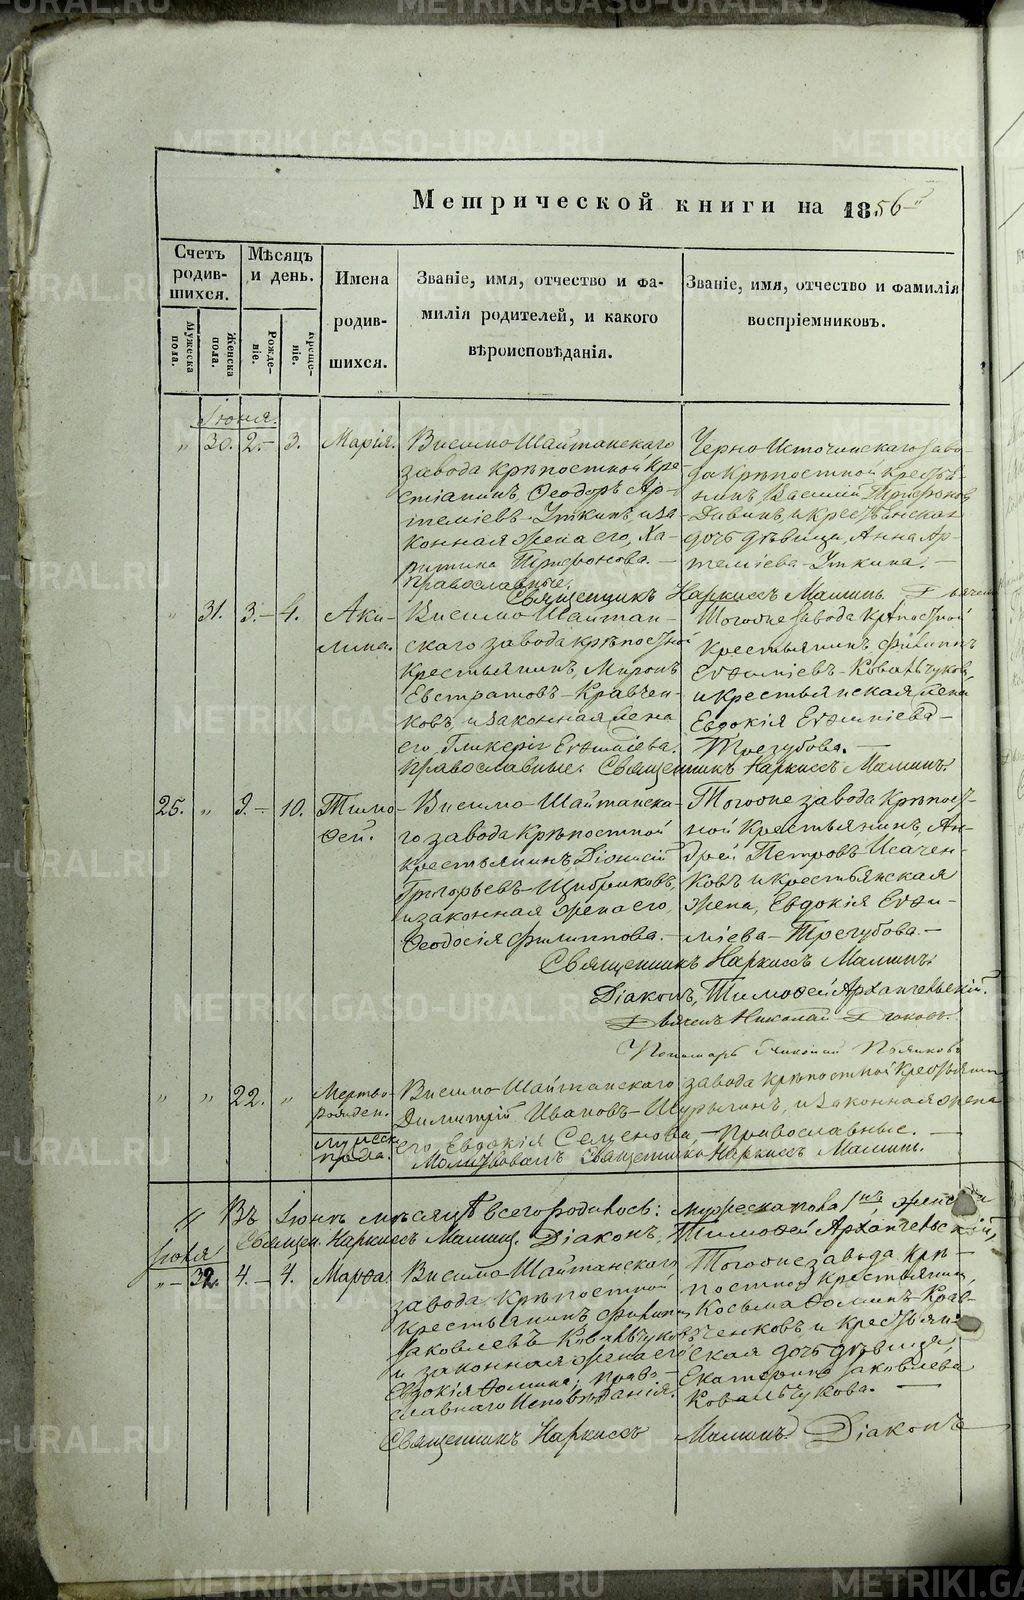 METRIKI.GASO-URAL.RU
Метрической книги на 1856й
Счетъ родившихся.
Мѣсяцъ и день.
Имена родившихся.
Званіе, имя, отчество и фамилія родителей, и какого вѣроисповѣданія.
Званіе, имя, отчество и фамилія воспріемниковъ.
Мужеска пола.
Женска пола.
Рожденіе.
Крещеніе.
Іюня.
" 30. 2.- 3. Марія.
Висимо-Шайтанскаго
завода крѣпостной кре
стіанинъ, Ѳеодоръ Ар-
теміевъ Уткинъ, и за-
конная жена его, Ха-
ритина Трифонова. —
Православные.
Черно-Источинскаго заво-
да крѣпостной крестья-
нинъ, Василій Трифоновъ
и крестьянская
дочь дѣвица, Анна Ар-
теміева Уткина. —
Священникъ Наркиссъ Маминъ
" 31. 3.- 4. Аки-
лина.
Висимо-Шайтан-
скаго завода крѣпостной
крестьянинъ, Миронъ
Евстратовъ-Кравчен-
ковъ и законная жена
его, Гликерія Евѳиміева.
Православные.
Тогоже завода крѣпостной
крестьянинъ Филиппъ
Евѳиміевъ-Ковальчуковъ,
и крестьянская жена
Евдокія Евѳиміева —
Трегубова. —
Священникъ Наркиссъ Маминъ.
25. " 9.- 10. Тимо-
ѳей.
Висимо-Шайтанска-
го завода крѣпостной
крестьянинъ Діонисій
Григорьевъ-Щибриковъ,
и законная жена его,
Ѳеодосія Филиппова. —
Тогоже завода крѣпост-
ной крестьянинъ, Ан-
дрей Петровъ Исачен-
ковъ и крестьянская
жена, Евдокія Евѳи-
міева-Трегубова. —
Священникъ Наркиссъ Маминъ.
Діаконъ, Тимоѳей Архангельскій.
Дьячекъ Николай Дюковъ.
Пономарь
" " 22. " Мертво-
рожден.
мужеск.
пола.
Висимо-Шайтанскаго завода крѣпостной крестьянинъ
Димитрій Ивановъ-Шурыгинъ, и законная жена
его, Евдокія Семенова, — православные. —
Молитвовалъ Священникъ Наркиссъ Маминъ.
Въ Іюнѣ мѣсяцѣ всего родилось: мужеска пола 1нъ женска
Священ. Наркиссъ Маминъ. Діаконъ, Тимоѳей Архангельскій,
Іюля
" - 32. 4.- 4. Марѳа.
Висимо-Шайтанскаго
завода крѣпостной
крестьянинъ Филиппъ
Яковлевъ Ковальчуковъ
и законная жена его
Евдокія Ѳомина; право-
славнаго исповѣданія.
Тогоже завода крѣ-
постной крестьянинъ,
Косьма Ѳоминъ Крав-
ченковъ и крестьян-
ская дочь дѣвица
Екатерина Яковлева
Ковальчукова. —
Священникъ Наркиссъ Маминъ. Діаконъ